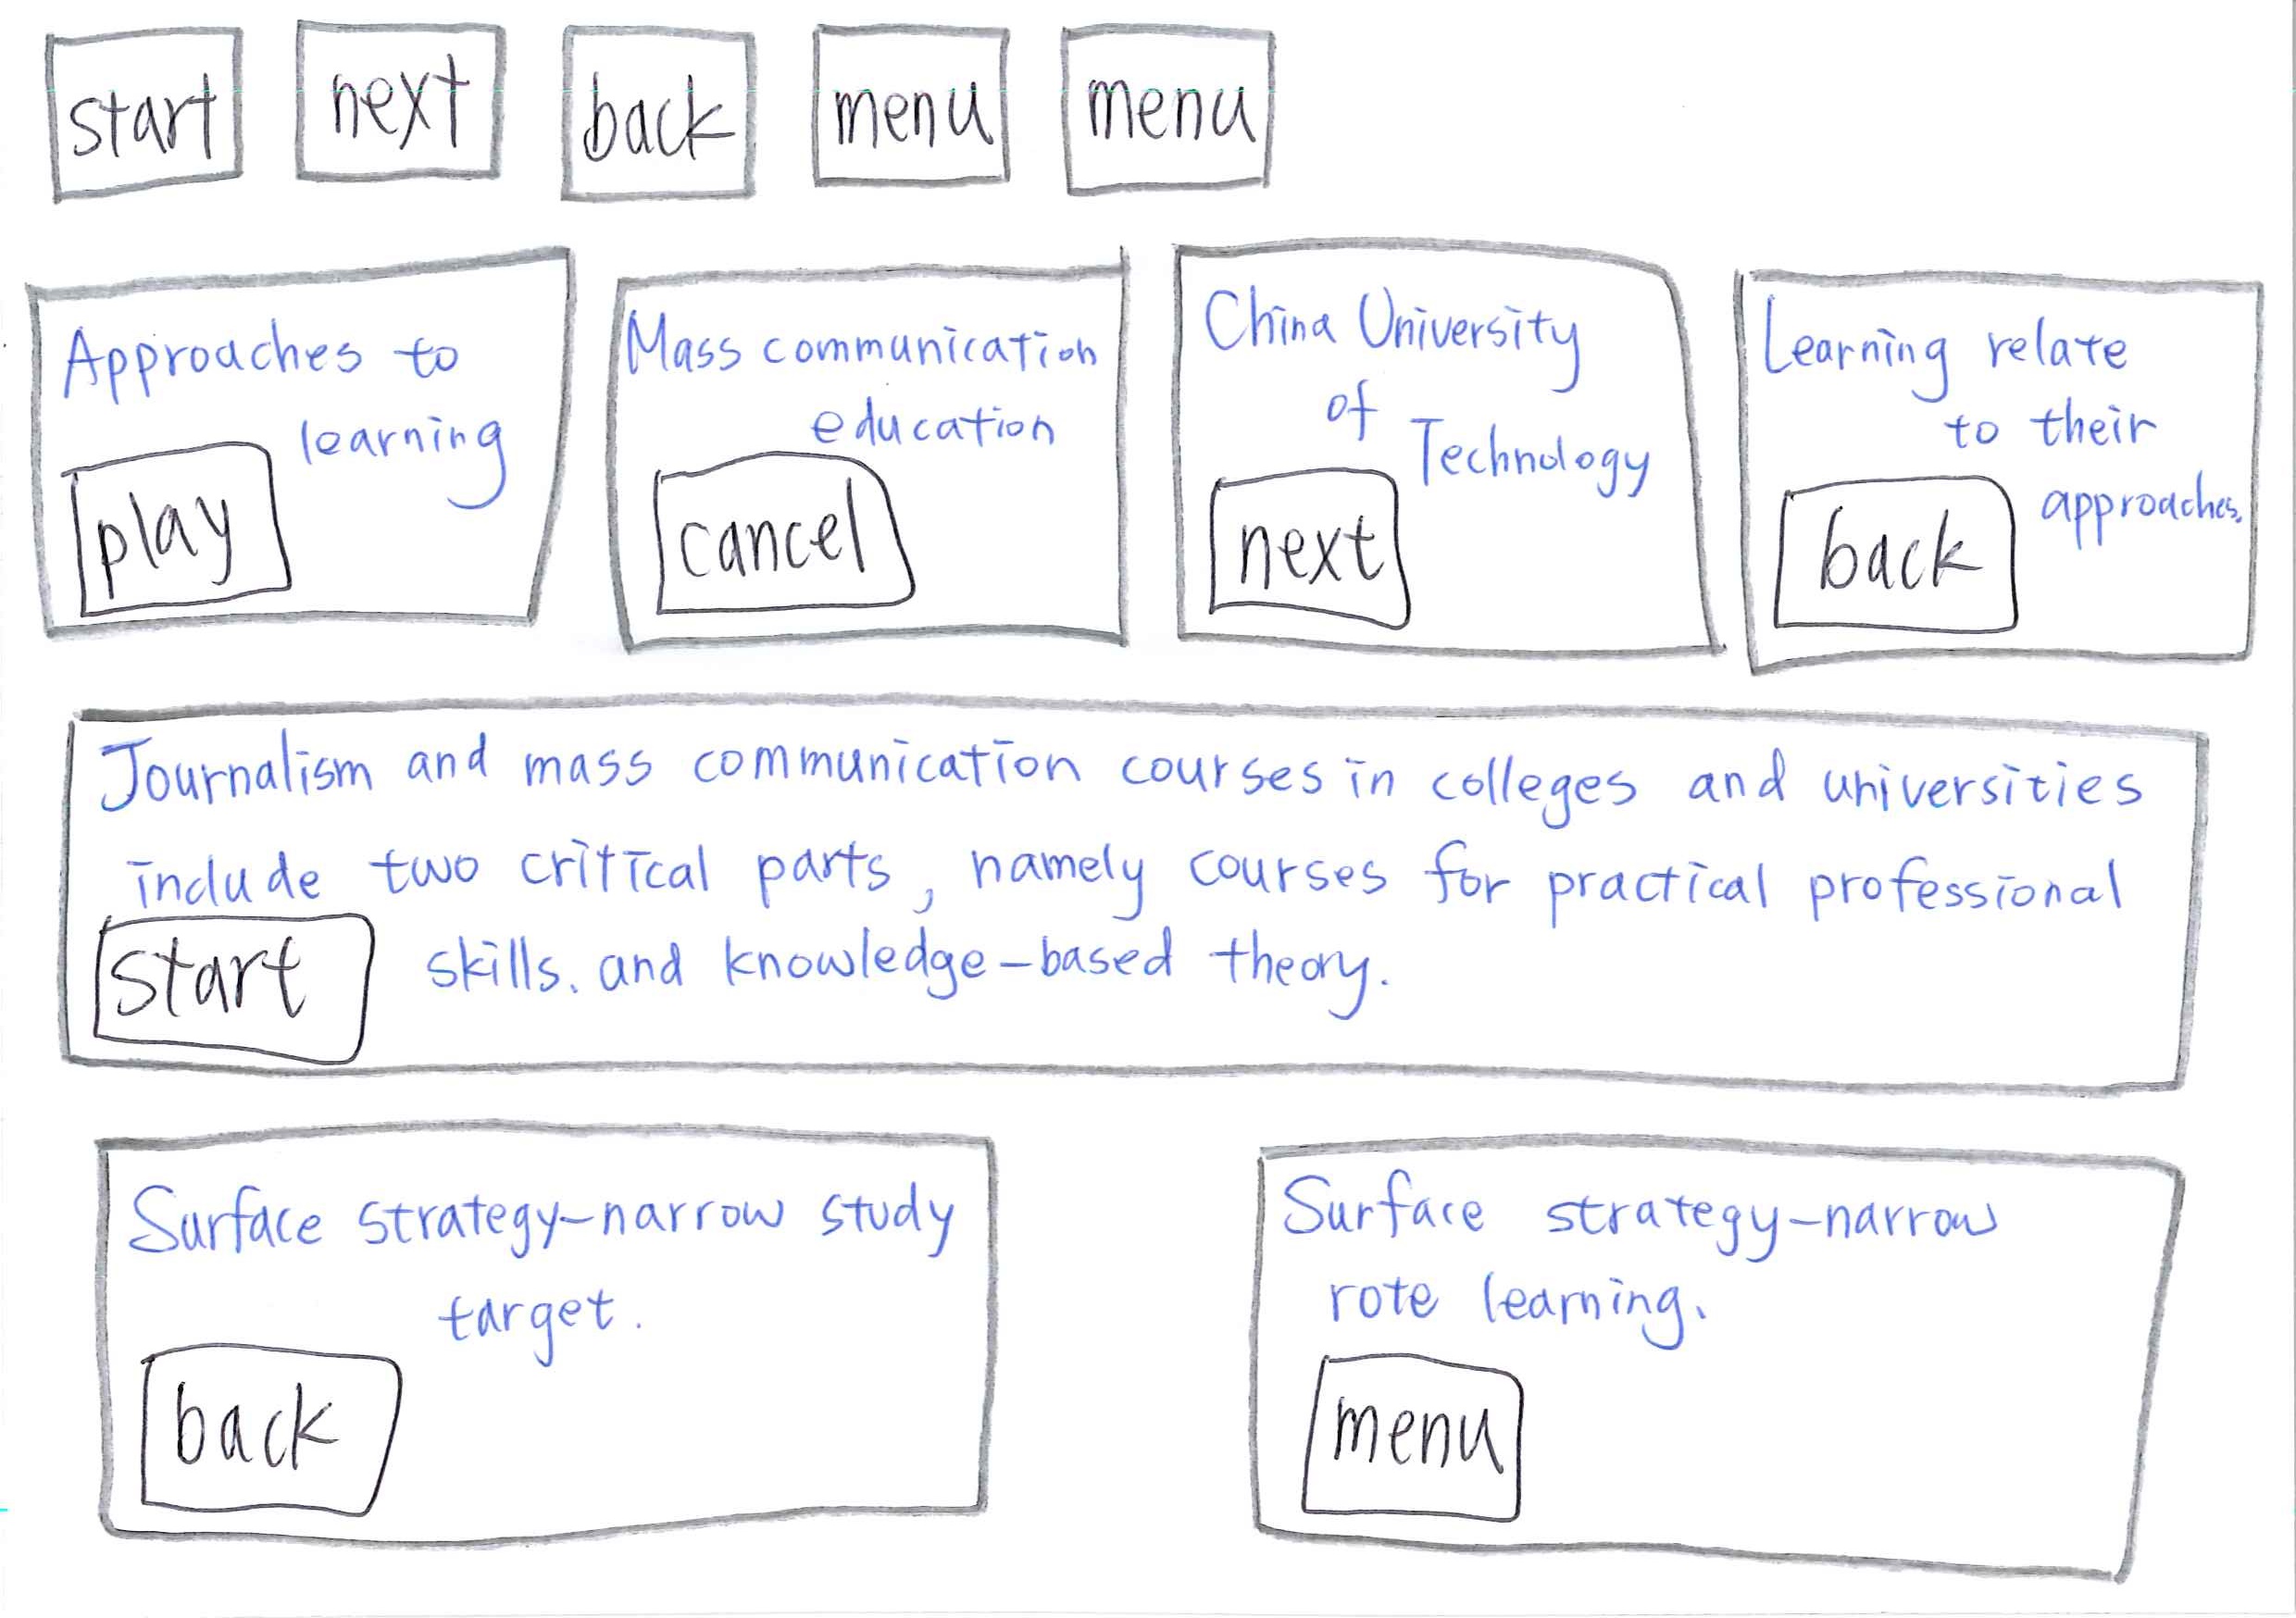 start next back menu menu
Approaches to
learning
play
Mass communication
education
cancel
China University
of
Technology
next
Learning relate
to their
approaches.
back
Journalism and mass communication courses in colleges and universities
include two critical parts, namely courses for practical professional
skills. and knowledge-based theory.
start
Surface strategy-narrow study
target.
back
Surface strategy-narrow
rote learning.
menu